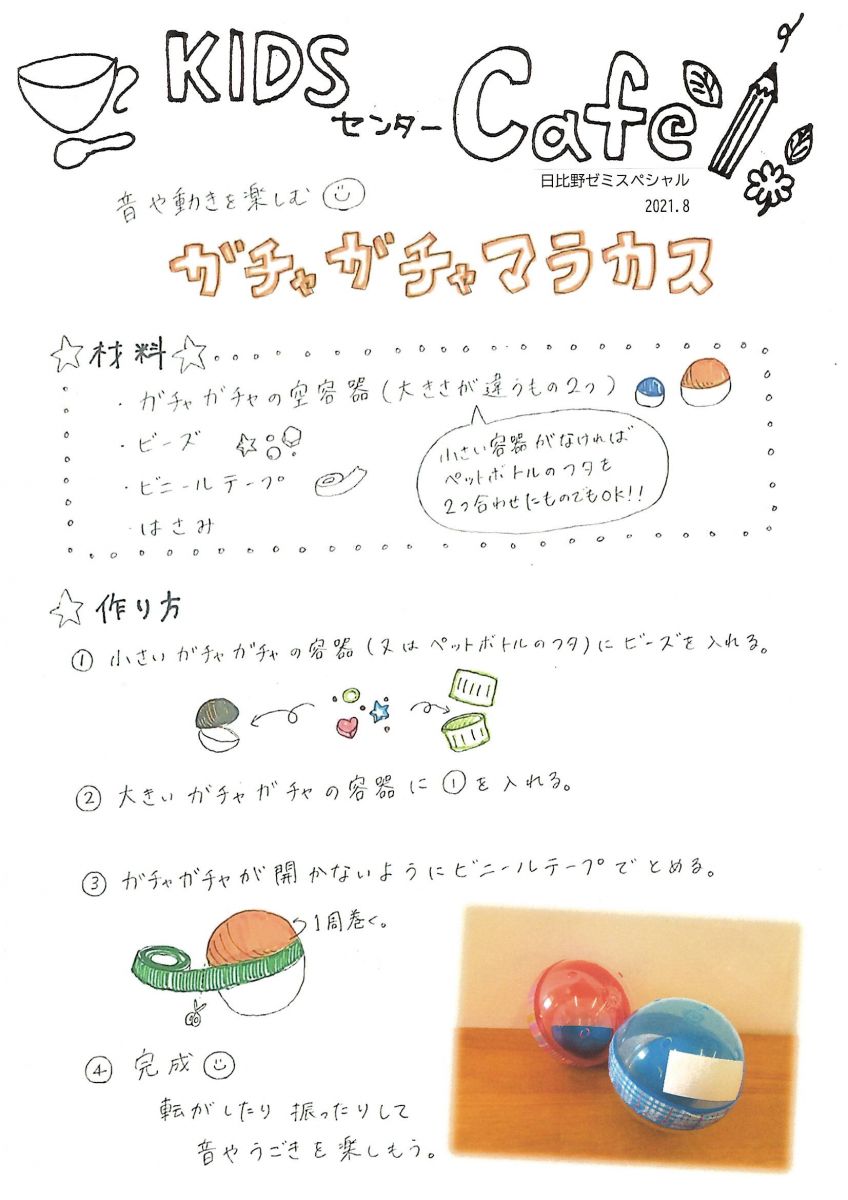 KIDS
センター Cafe
日比野ゼミスペシャル
2021.8
音や動きを楽しむ
ガチャガチャマラカス
☆材料☆
・ガチャガチャの空容器(大きさが違うもの2つ)
小さい容器がなければ
ペットボトルのフタを
2つ合わせたものでもOK!!
・ビーズ
・ビニールテープ
・はさみ
☆作り方
① 小さいガチャガチャの容器(又はペットボトルのフタ)にビーズを入れる。
② 大きいガチャガチャの容器に①を入れる。
③ ガチャガチャが開かないようにビニールテープでとめる。
1周巻く。
④ 完成
転がしたり振ったりして
音やうごきを楽しもう。